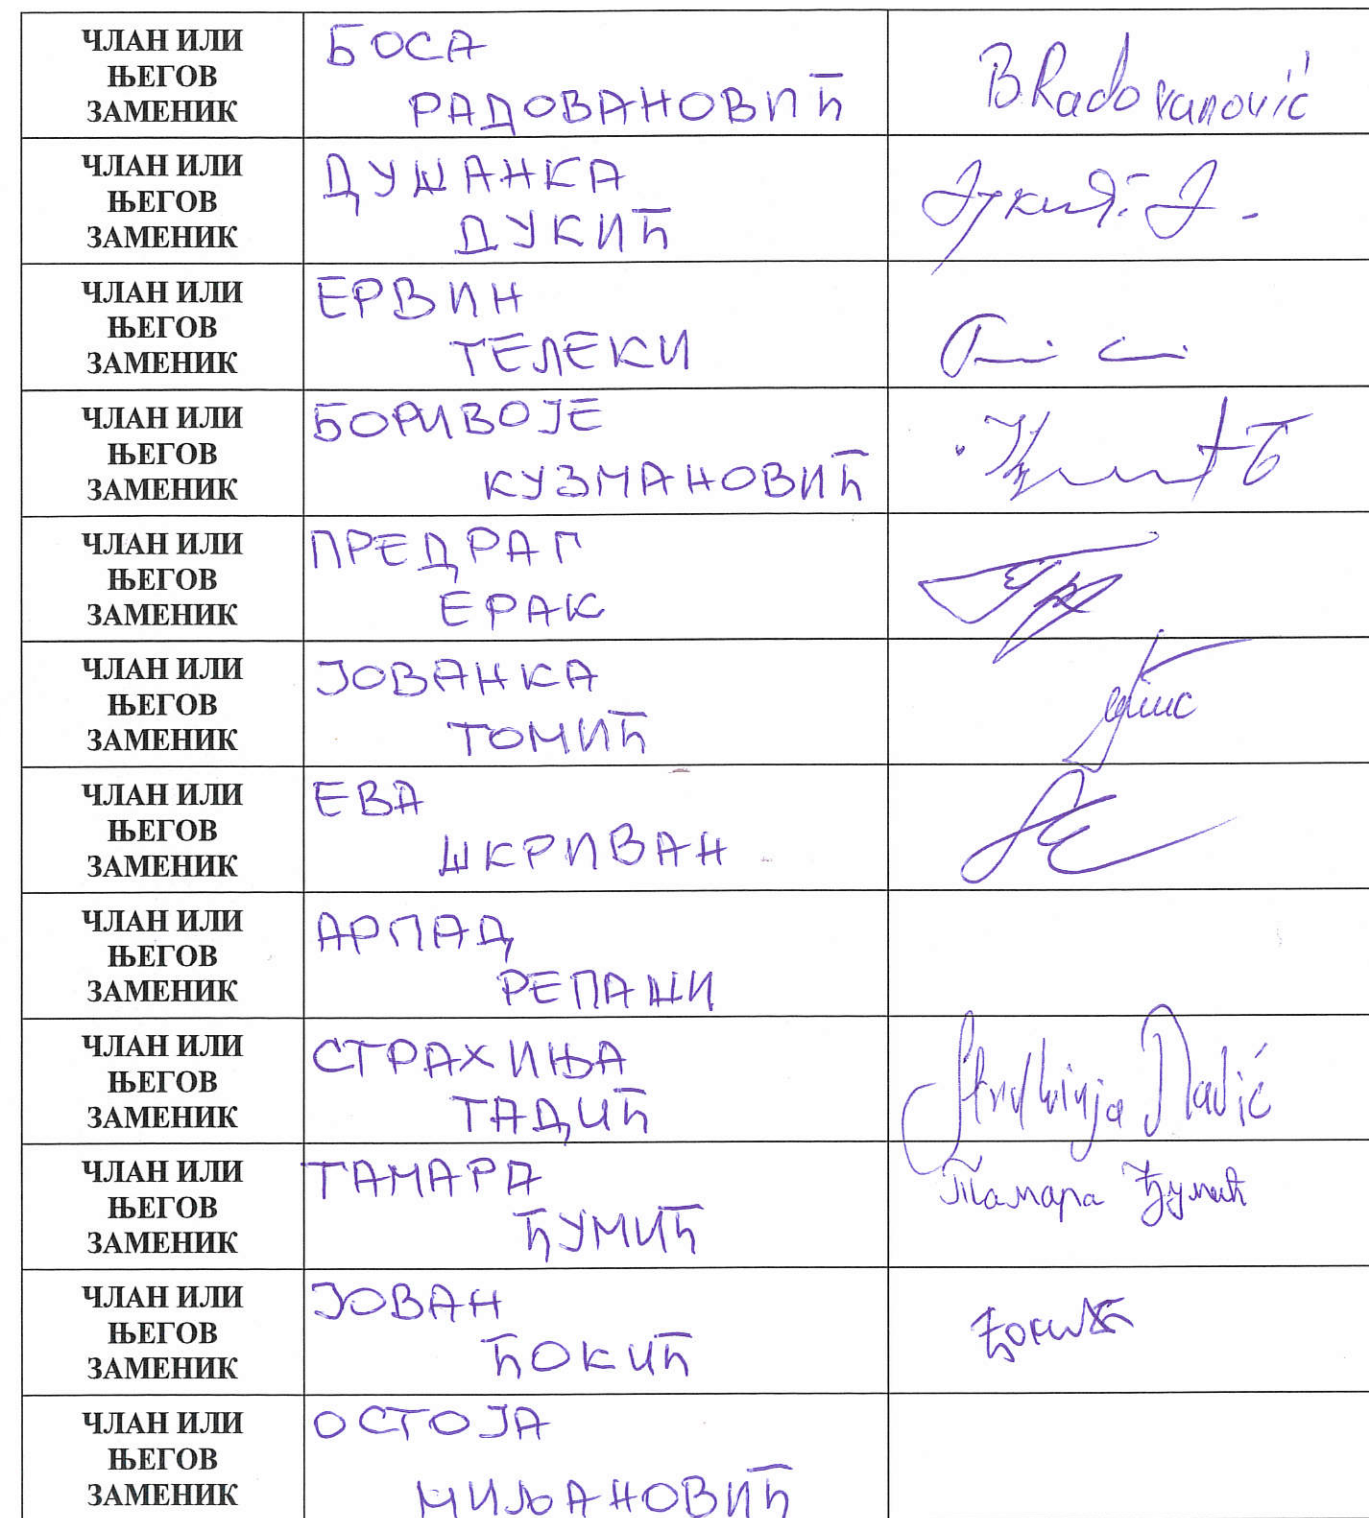 ЧЛАН ИЛИ
ЊЕГОВ
ЗАМЕНИК
БОСА
РАДОВАНОВИЋ
B Radovanović
ЧЛАН ИЛИ
ЊЕГОВ
ЗАМЕНИК
ДУШАНКА
ДУКИЋ
ЧЛАН ИЛИ
ЊЕГОВ
ЗАМЕНИК
ЕРВИН
ТЕЛЕКИ
ЧЛАН ИЛИ
ЊЕГОВ
ЗАМЕНИК
БОРИВОЈЕ
КУЗМАНОВИЋ
ЧЛАН ИЛИ
ЊЕГОВ
ЗАМЕНИК
ПРЕДРАГ
ЕРАК
ЧЛАН ИЛИ
ЊЕГОВ
ЗАМЕНИК
ЈОВАНКА
ТОМИЋ
ЧЛАН ИЛИ
ЊЕГОВ
ЗАМЕНИК
ЕВА
ШКРИВАН
ЧЛАН ИЛИ
ЊЕГОВ
ЗАМЕНИК
АРПАД
РЕПАШИ
ЧЛАН ИЛИ
ЊЕГОВ
ЗАМЕНИК
СТРАХИЊА
ТАДИЋ
Strahinja Tadić
ЧЛАН ИЛИ
ЊЕГОВ
ЗАМЕНИК
ТАМАРА
ЋУМИЋ
Тамара Ђумић
ЧЛАН ИЛИ
ЊЕГОВ
ЗАМЕНИК
ЈОВАН
ЋОКИЋ
ЧЛАН ИЛИ
ЊЕГОВ
ЗАМЕНИК
ОСТОЈА
МИЉАНОВИЋ